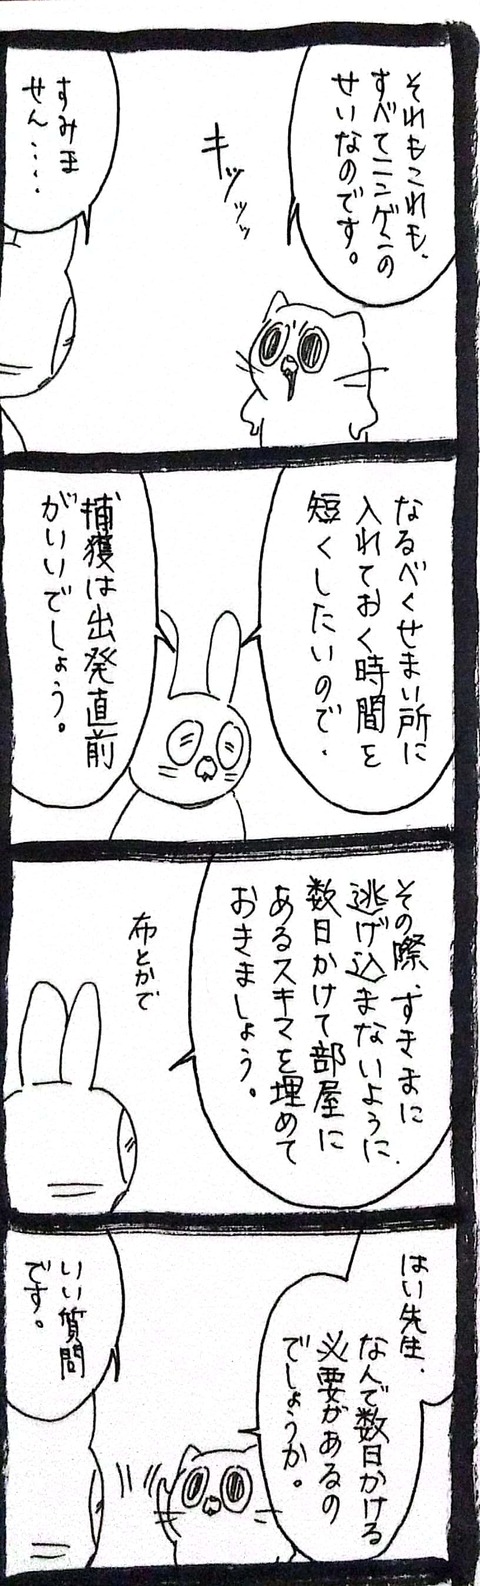 それもこれも、
すべてニンゲンの
せいなのです。
キッッッ
すみま
せん‥‥
なるべくせまい所に
入れておく時間を
短くしたいので、
捕獲は出発直前
がいいでしょう。
その際、すきまに
逃げ込まないように、
数日かけて部屋に
あるスキマを埋めて
おきましょう。
布とかで
はい先生、
なんで数日かける
必要があるの
でしょうか。
いい質問
です。